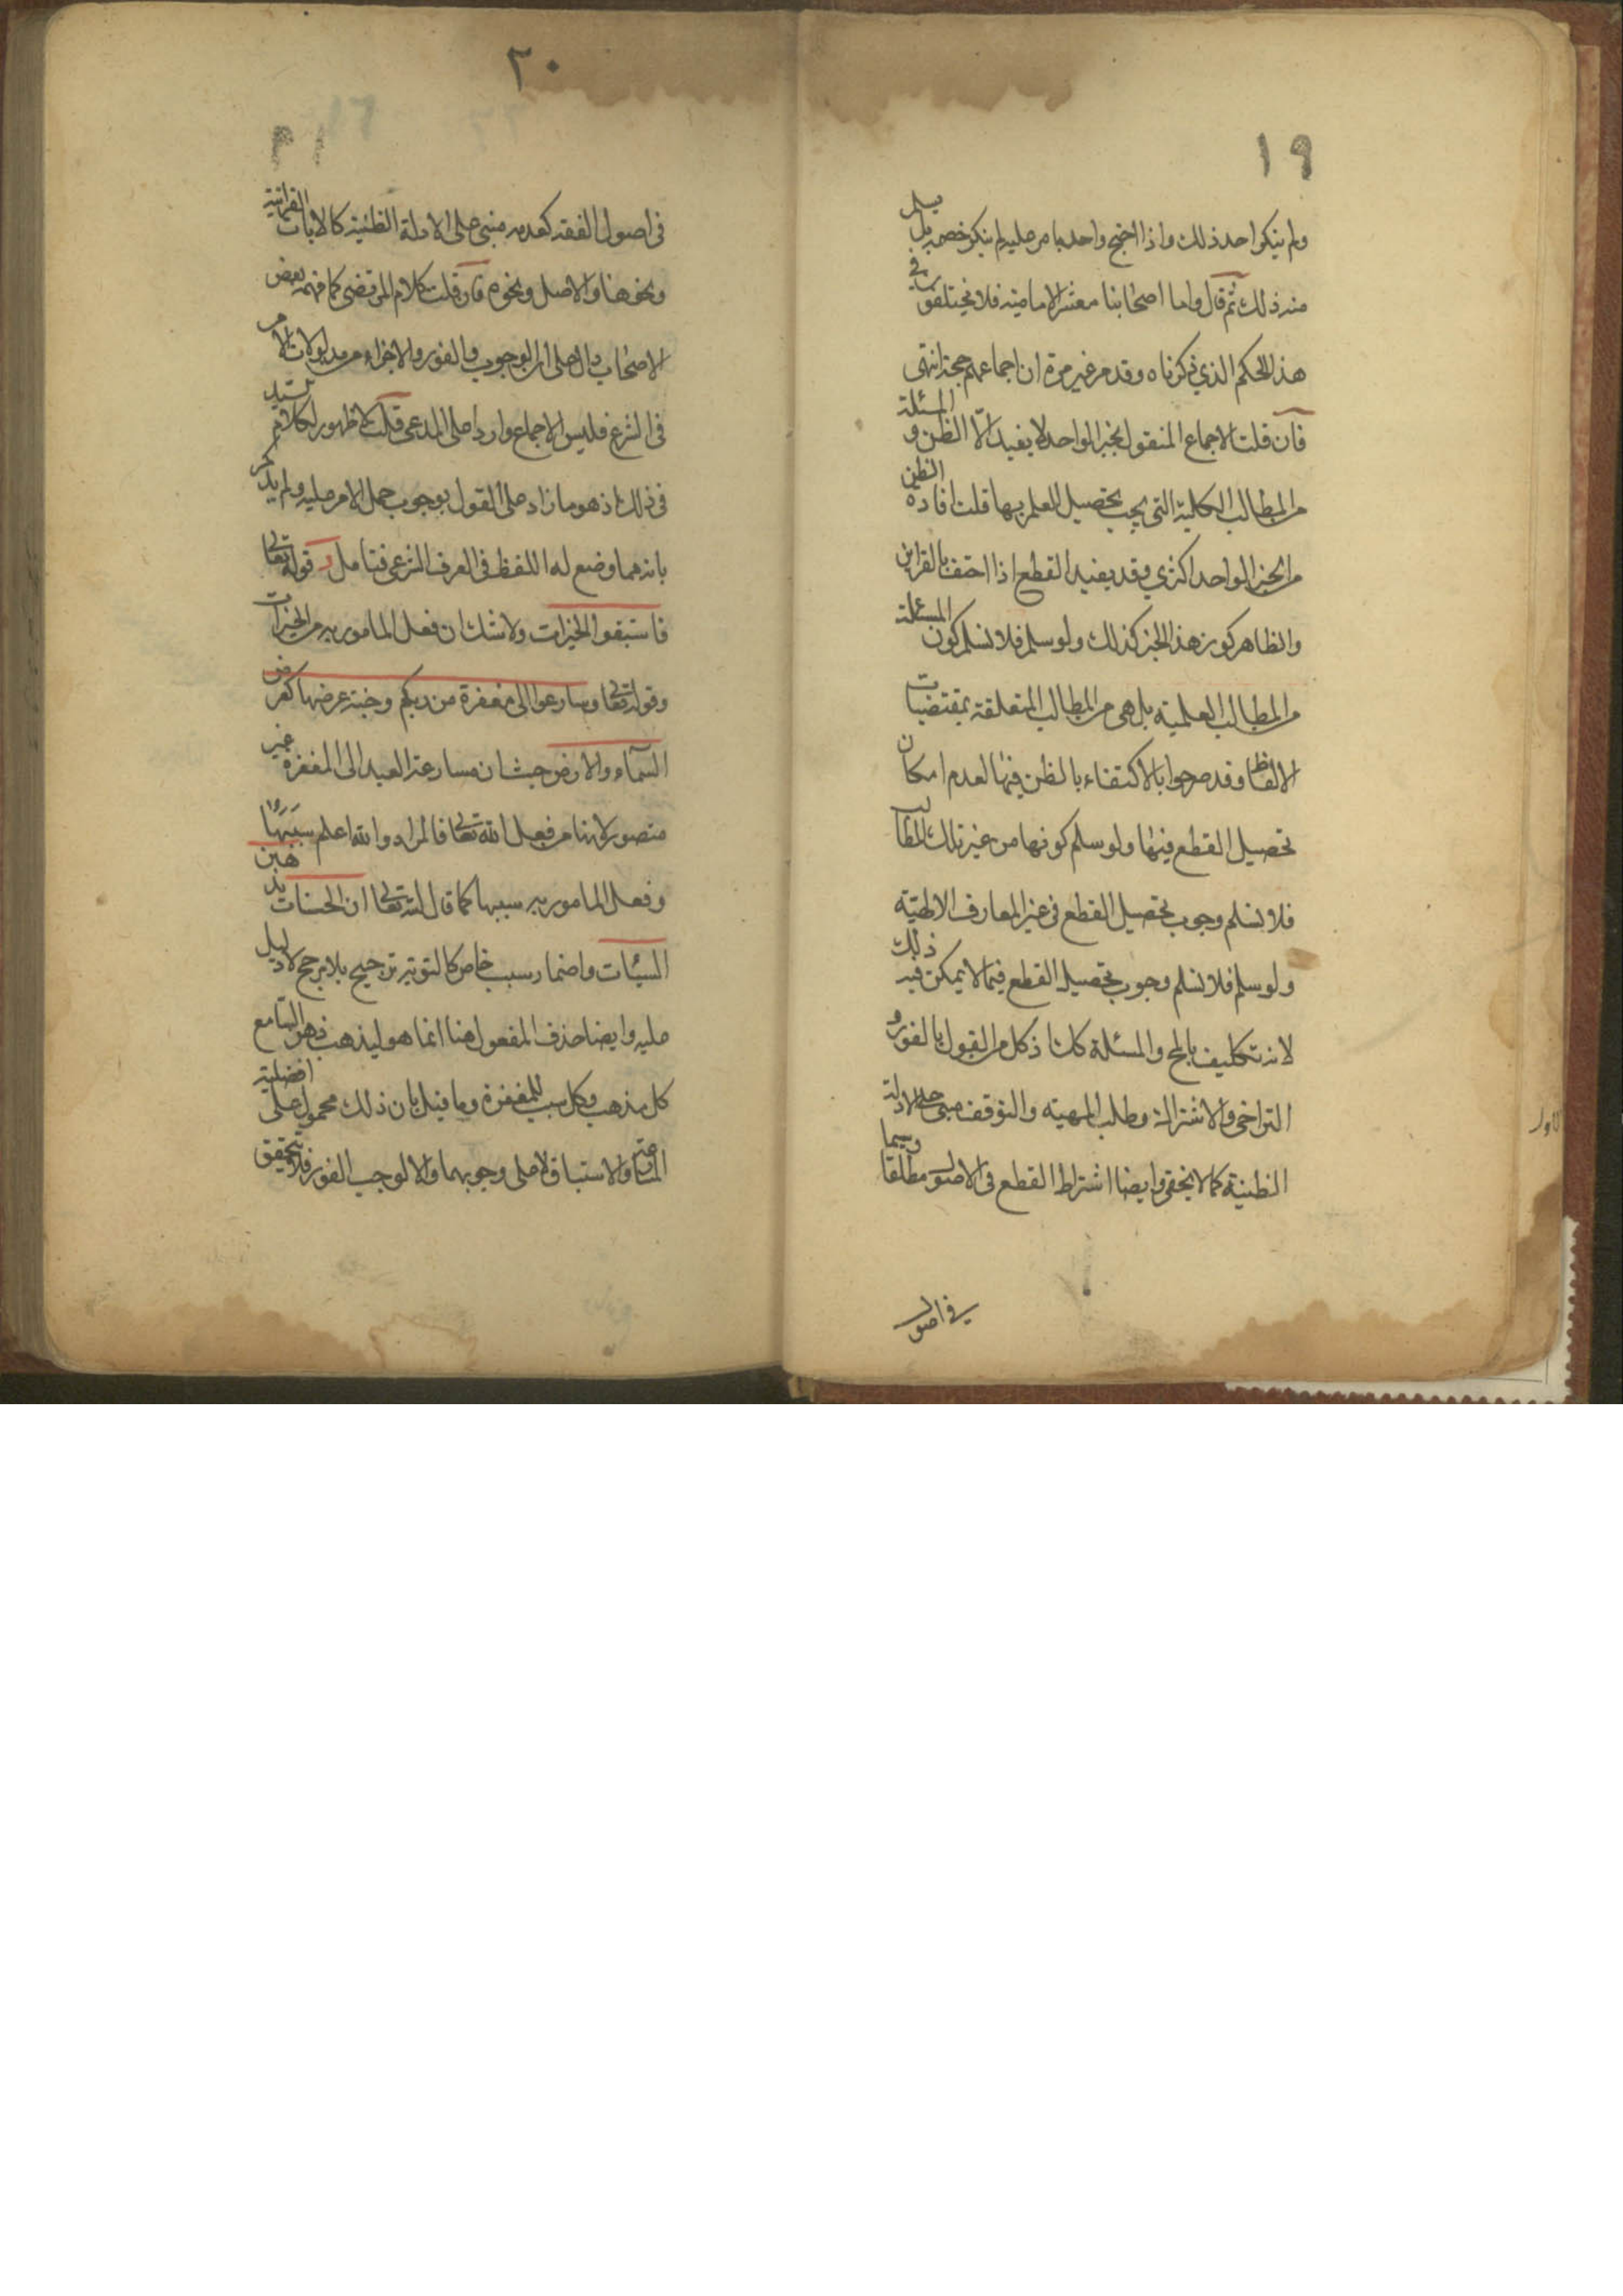 ١٩
ولم ينكر احد ذلك واذا احتج واحد بامر عليه لم ينكر خصمه بل يسلم
منه ذلك ثم قال واما اصحابنا معشر الامامية فلا يختلفون في
هذا الحكم الذي ذكرناه وقد مر غير مرة ان اجماعهم حجة انتهى
فان قلت الاجماع المنقول بخبر الواحد لا يفيد الّا الظن و المسئلة
من المطالب الكلية التى يجب تحصيل العلم بها قلت افادة الظن
من الخبر الواحد اكثري وقد يفيد القطع اذا احتف بالقراين
والظاهر كون هذا الخبر كذلك ولو سلم فلا نسلم كون المسئلة
من المطالب العلمية بل هى من المطالب المتعلقة بمقتضيات
الالفاظ وقد صرحوا بالاكتفاء بالظن فيها لعدم امكان
تحصيل القطع فيها ولو سلم كونها من غير تلك المطالب
فلا نسلم وجوب تحصيل القطع فى غير المعارف الالهيّه
ولو سلم فلا نسلم وجوب تحصيل القطع فيما لا يمكن فيه ذلك
لانه تكليف بالمح والمسئلة كذا ذكل من القبول بالفور و
التراخى والاشتراك وطلب المهية والتوقف مبنى على الادلة
الظنية كما لا يخفى وايضا اشتراط القطع فى الاصول مطلقا وسيما
في اصول
٢٠
٢١
فى اصول الفقه كعدمه مبنى على الادلة الظنية كالايات القرانية
ونحوها والاصل ونحوه فان قلت كلام المرتضى كما فهمه بعض
الاصحاب دال على ان الوجوب والفور والاجزاء من مدلولات الامر
فى الشرع فليس الاجماع واردا على المدعى قلت لا ظهور لكلام السيد
فى ذلك اذ هو ما زاد على القول بوجوب حمل الامر عليه ولم يذكر
بانه مما وضع له اللفظ فى العرف الشرعى فتامل و قوله تعالى
فاستبقوا الخيرات ولا شك ان فعل المامور به من الخيرات
وقوله تعالى وسارعوا الى مغفرة من ربكم وجنة عرضها كعرض
السمآء والارض حيث ان مسارعة العبد الى المغفرة غير
متصور لانها من فعل الله تعالى فالمراد والله اعلم سببها
وفعل المامور به سببها كما قال الله تعالى ان الحسنات يذهبن
السيئات واضمار سبب خاص كالتوبة ترجيح بلا مرجح لا دليل
عليه وايضا حذف المفعول هنا انما هو ليذهب ذهن السامع
كل مذهب وكل سبب للمغفرة وما قيل بان ذلك محمول على افضلية
المسارعة والاستباق لا على وجوبهما والا لوجب الفور فلا يتحقق